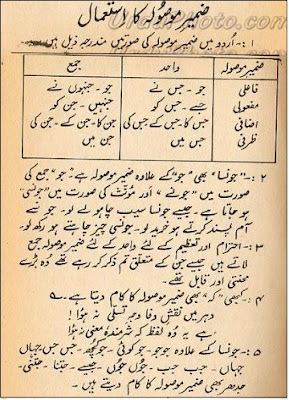 ضمیر موصولہ کا استعمال
۱ :- اُردو میں ضمیر موصولہ کی صورتیں مندرجہ ذیل ہیں
ضمیر موصولہ واحد جمع
فاعلی جو - جس نے جو - جنہوں نے
مفعولی جسے - جس کو جنہیں - جن کو
اضافی جس کا - جس کے جس کی جن کا - جن کے - جن کی
ظرفی جس میں جن میں
۲ :- "جونسا" بھی "جو" کے علاوہ ضمیر موصولہ ہے "جو" جمع کی
صورت میں "جونے" اور مؤنث کی صورت میں "جونسی"
ہو جاتا ہے - جیسے جونسا سیب چاہو لے لو - جو نسے
آم پسند کرتے ہو خرید لو - جونسی چیز چاہتے ہو رکھ لو -
۳ :- احترام اور تعظیم کے لئے واحد کے لئے ضمیر موصولہ جمع
لاتے ہیں جیسے جن کے متعلق تم ذکر کر رہے تھے وہ بڑے
محنتی اور قابل تھے -
۴ :- کبھی "کہ" بھی ضمیر موصولہ کا کام دیتا ہے -
دہر میں نقش وفا وجہ تسلی نہ ہوا !
ہے یہ وہ لفظ کہ شرمندہ معنی نہ ہوا
۵ :- جونسا کے علاوہ جو جو - جو کوئی - جو کچھ - جس جس جہاں
جہاں - جب جب - جوں جوں - جیسے - جتنا - جتنی -
جدھر بھی ضمیر موصولہ کا کام دیتے ہیں -